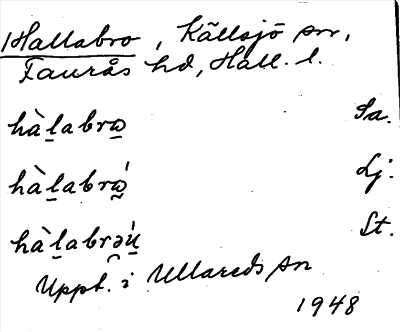 Hallabro, Källsjö sn,
Faurås hd, Hall. l.
hàl̠abrω̠ Sa.
hàl̠abrώ̰ Lj.
hàl̠abrə̯ú̠ St.
Uppt. i Ullareds sn
1948